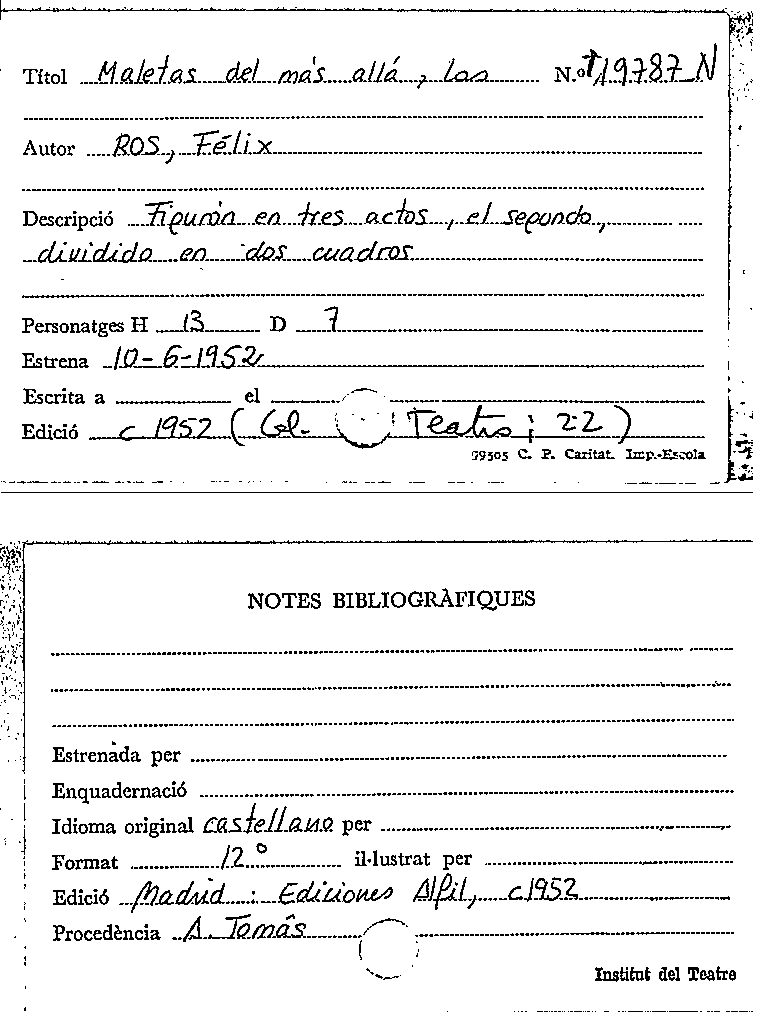 Títol Maletas del más allá, Las N.º T/19787 N
Autor ROS, Félix
Descripció Tipurón en tres actos, el segundo,
dividido en dos cuadros
Personatges H 13 D 7
Estrena 10-6-1952
Escrita a el
Edició c 1952 (Col. Teatro; 22)
99505 C. P. Caritat. Imp.-Escola
NOTES BIBLIOGRÀFIQUES
Estrenàda per
Enquadernació
Idioma original castellano per
Format 12º il·lustrat per
Edició Madrid: Ediciones Alfil, c1952
Procedència A. Tomás
Institut del Teatre